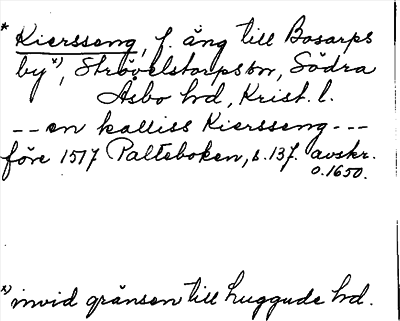 * Kiersseng, f. äng till Bosarps
by x), Strövelstorps sn, Södra
Åsbo hd, Krist. l.
-- en kalliss Kiersseng ---
före 1517 Palteboken, s. 137. avskr.
o. 1650.
x) invid gränsen till Luggude hd.